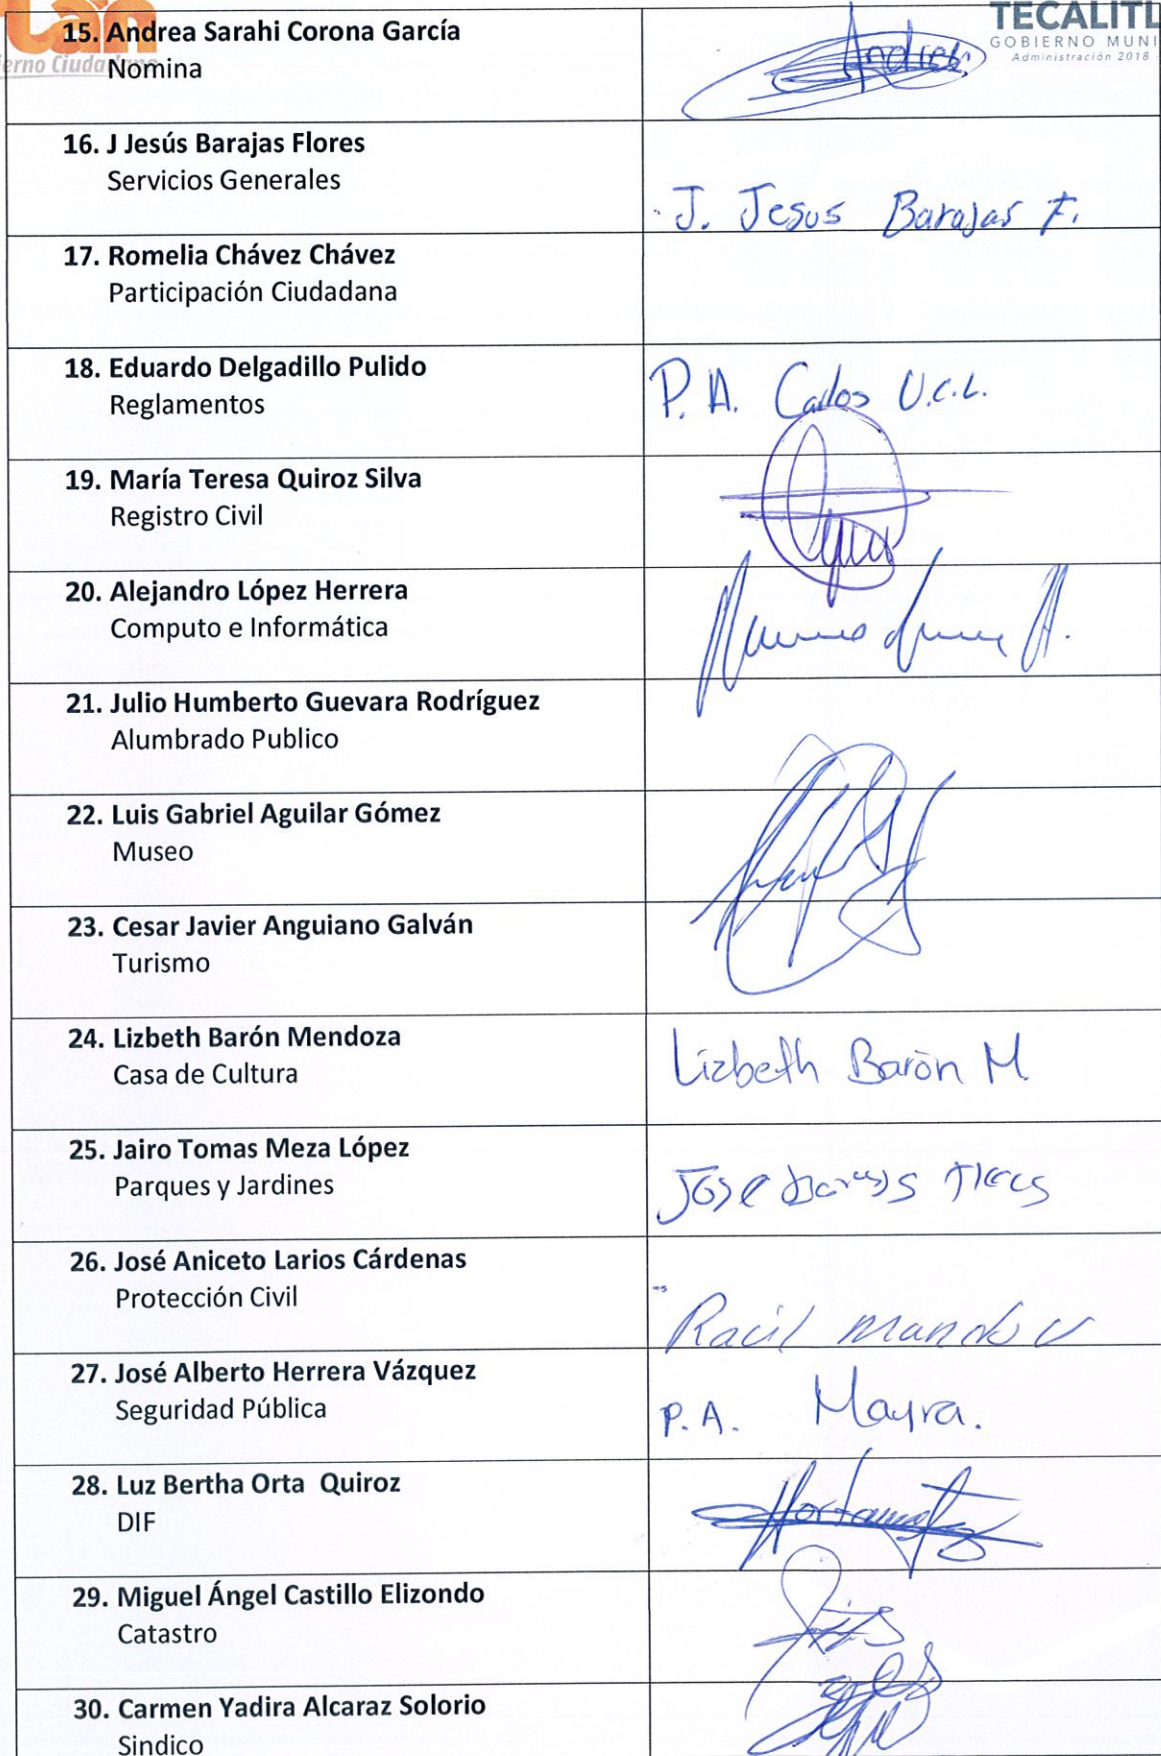 TECALITL
GOBIERNO MUNI
Administración 2018
tán
erno Ciudadano
15. Andrea Sarahi Corona García
Nomina
Andrea
16. J Jesús Barajas Flores
Servicios Generales
J. Jesus Barajas F.
17. Romelia Chávez Chávez
Participación Ciudadana
18. Eduardo Delgadillo Pulido
Reglamentos
P. A. Carlos U.C.L.
19. María Teresa Quiroz Silva
Registro Civil
20. Alejandro López Herrera
Computo e Informática
21. Julio Humberto Guevara Rodríguez
Alumbrado Publico
22. Luis Gabriel Aguilar Gómez
Museo
23. Cesar Javier Anguiano Galván
Turismo
24. Lizbeth Barón Mendoza
Casa de Cultura
Lizbeth Barón M
25. Jairo Tomas Meza López
Parques y Jardines
Jose
26. José Aniceto Larios Cárdenas
Protección Civil
Raúl
27. José Alberto Herrera Vázquez
Seguridad Pública
P.A. Mayra.
28. Luz Bertha Orta Quiroz
DIF
29. Miguel Ángel Castillo Elizondo
Catastro
30. Carmen Yadira Alcaraz Solorio
Sindico